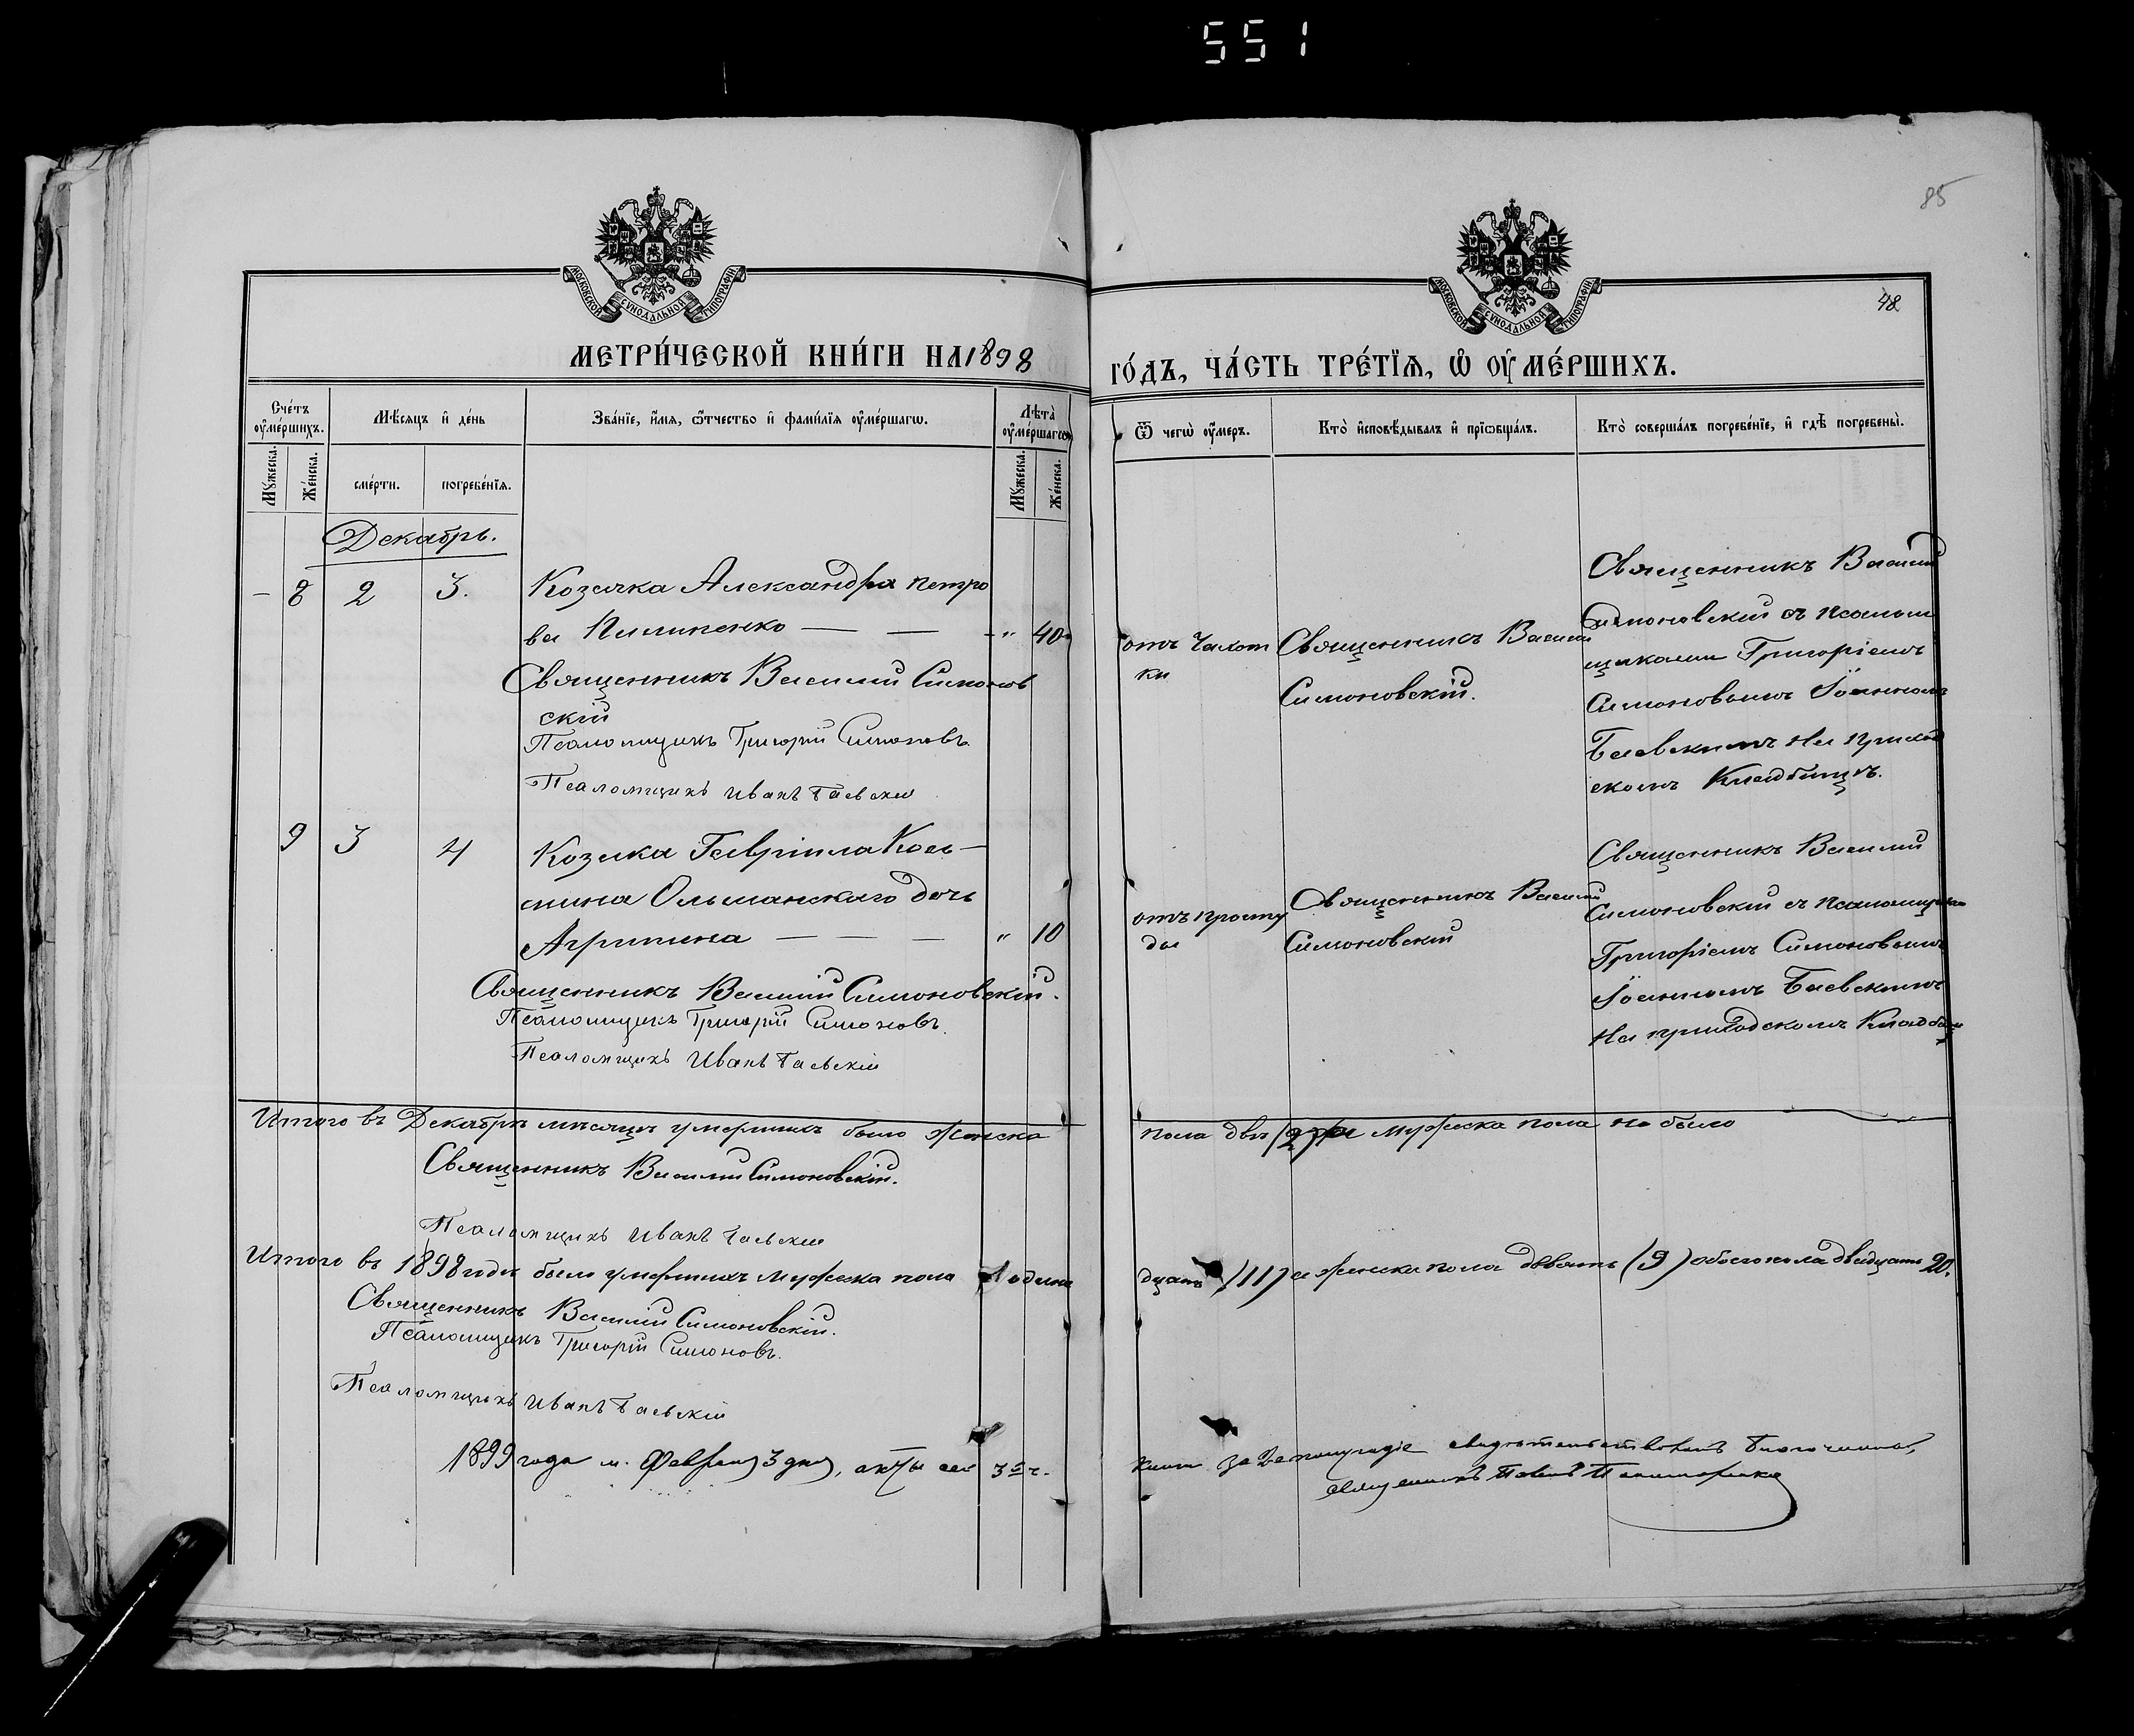 551
85
48
МОСКОВСКОЙ СѴНОДАЛЬНОЙ ТИПОГРАФІИ
МОСКОВСКОЙ СѴНОДАЛЬНОЙ ТИПОГРАФІИ
МЕТРИ́ЧЕСКОЙ КНИ́ГИ НА 1898
ГО́ДЪ, ЧА́СТЬ ТРЕ́ТЇѦ, Ѡ҆ ОУ҆МЕ́РШИХЪ.
Сче́тъ оу҆ме́ршихъ.
Мѣ́сѧцъ и҆ де́нь
Зва́нїе, и҆́мѧ, ѻ҆́тчество и҆ фами́лїѧ оу҆ме́ршагѡ.
Лѣ̀та оу҆ме́ршагѡ
Ѿ чегѡ̀ оу҆́меръ.
Кто̀ и҆сповѣ́дывалъ и҆ прїѡбща́лъ.
Кто̀ соверша́лъ погребе́нїе, и҆ гдѣ̀ погребены̀.
Мꙋ́жеска.
Же́нска.
сме́рти.
погребе́нїѧ.
Мꙋ́жеска.
Же́нска.
Декабрь.
– 8 2 3. Козачка Александра Петро
ва Пилипенко — — – „ 40
Священникъ Василій Симонов
скій
Псаломщикъ Григорій Симоновъ.
Псаломщикъ Иванъ Баевскій
отъ Чахот
ки
Священникъ Василій
Симоновскій.
Священникъ Василій
Симоновскій съ псалом
щиками Григоріемъ
Симоновымъ Іоанномъ
Баевскимъ на приход
скомъ Кладбищѣ.
9 3 4 Козака Гавріила Кось–
мина Ольшанскаго дочь
Агрипина — — — „ 10
Священникъ Василій Симоновскій.
Псаломщикъ Григорій Симоновъ.
Псаломщикъ Иванъ Баевскій
отъ просту
ды
Священникъ Василій
Симоновскій
Священникъ Василій
Симоновскій съ псаломщиками
Григоріемъ Симоновымъ
Іоанномъ Баевскимъ
на приходскомъ Кладбищ
Итого въ Декабрѣ мѣсяцѣ умершихъ было Женска
пола двѣ (2) а мужеска пола не было
Священникъ Василій Симоновскій.
Псаломщикъ Иванъ Баевскій
Итого въ 1898 годѣ было умершихъ мужеска пола одина
дцать (11) а женска пола девять (9) обоего пола двадцать 20.
Священникъ Василій Симоновскій.
Псаломщикъ Григорій Симоновъ.
Псаломщикъ Иванъ Баевскій
1899 года м. Февраля 3 дня, акты сей 3й ч.
книги за 2е полугодіе свидѣтельствовалъ благочинный,
священникъ Павелъ